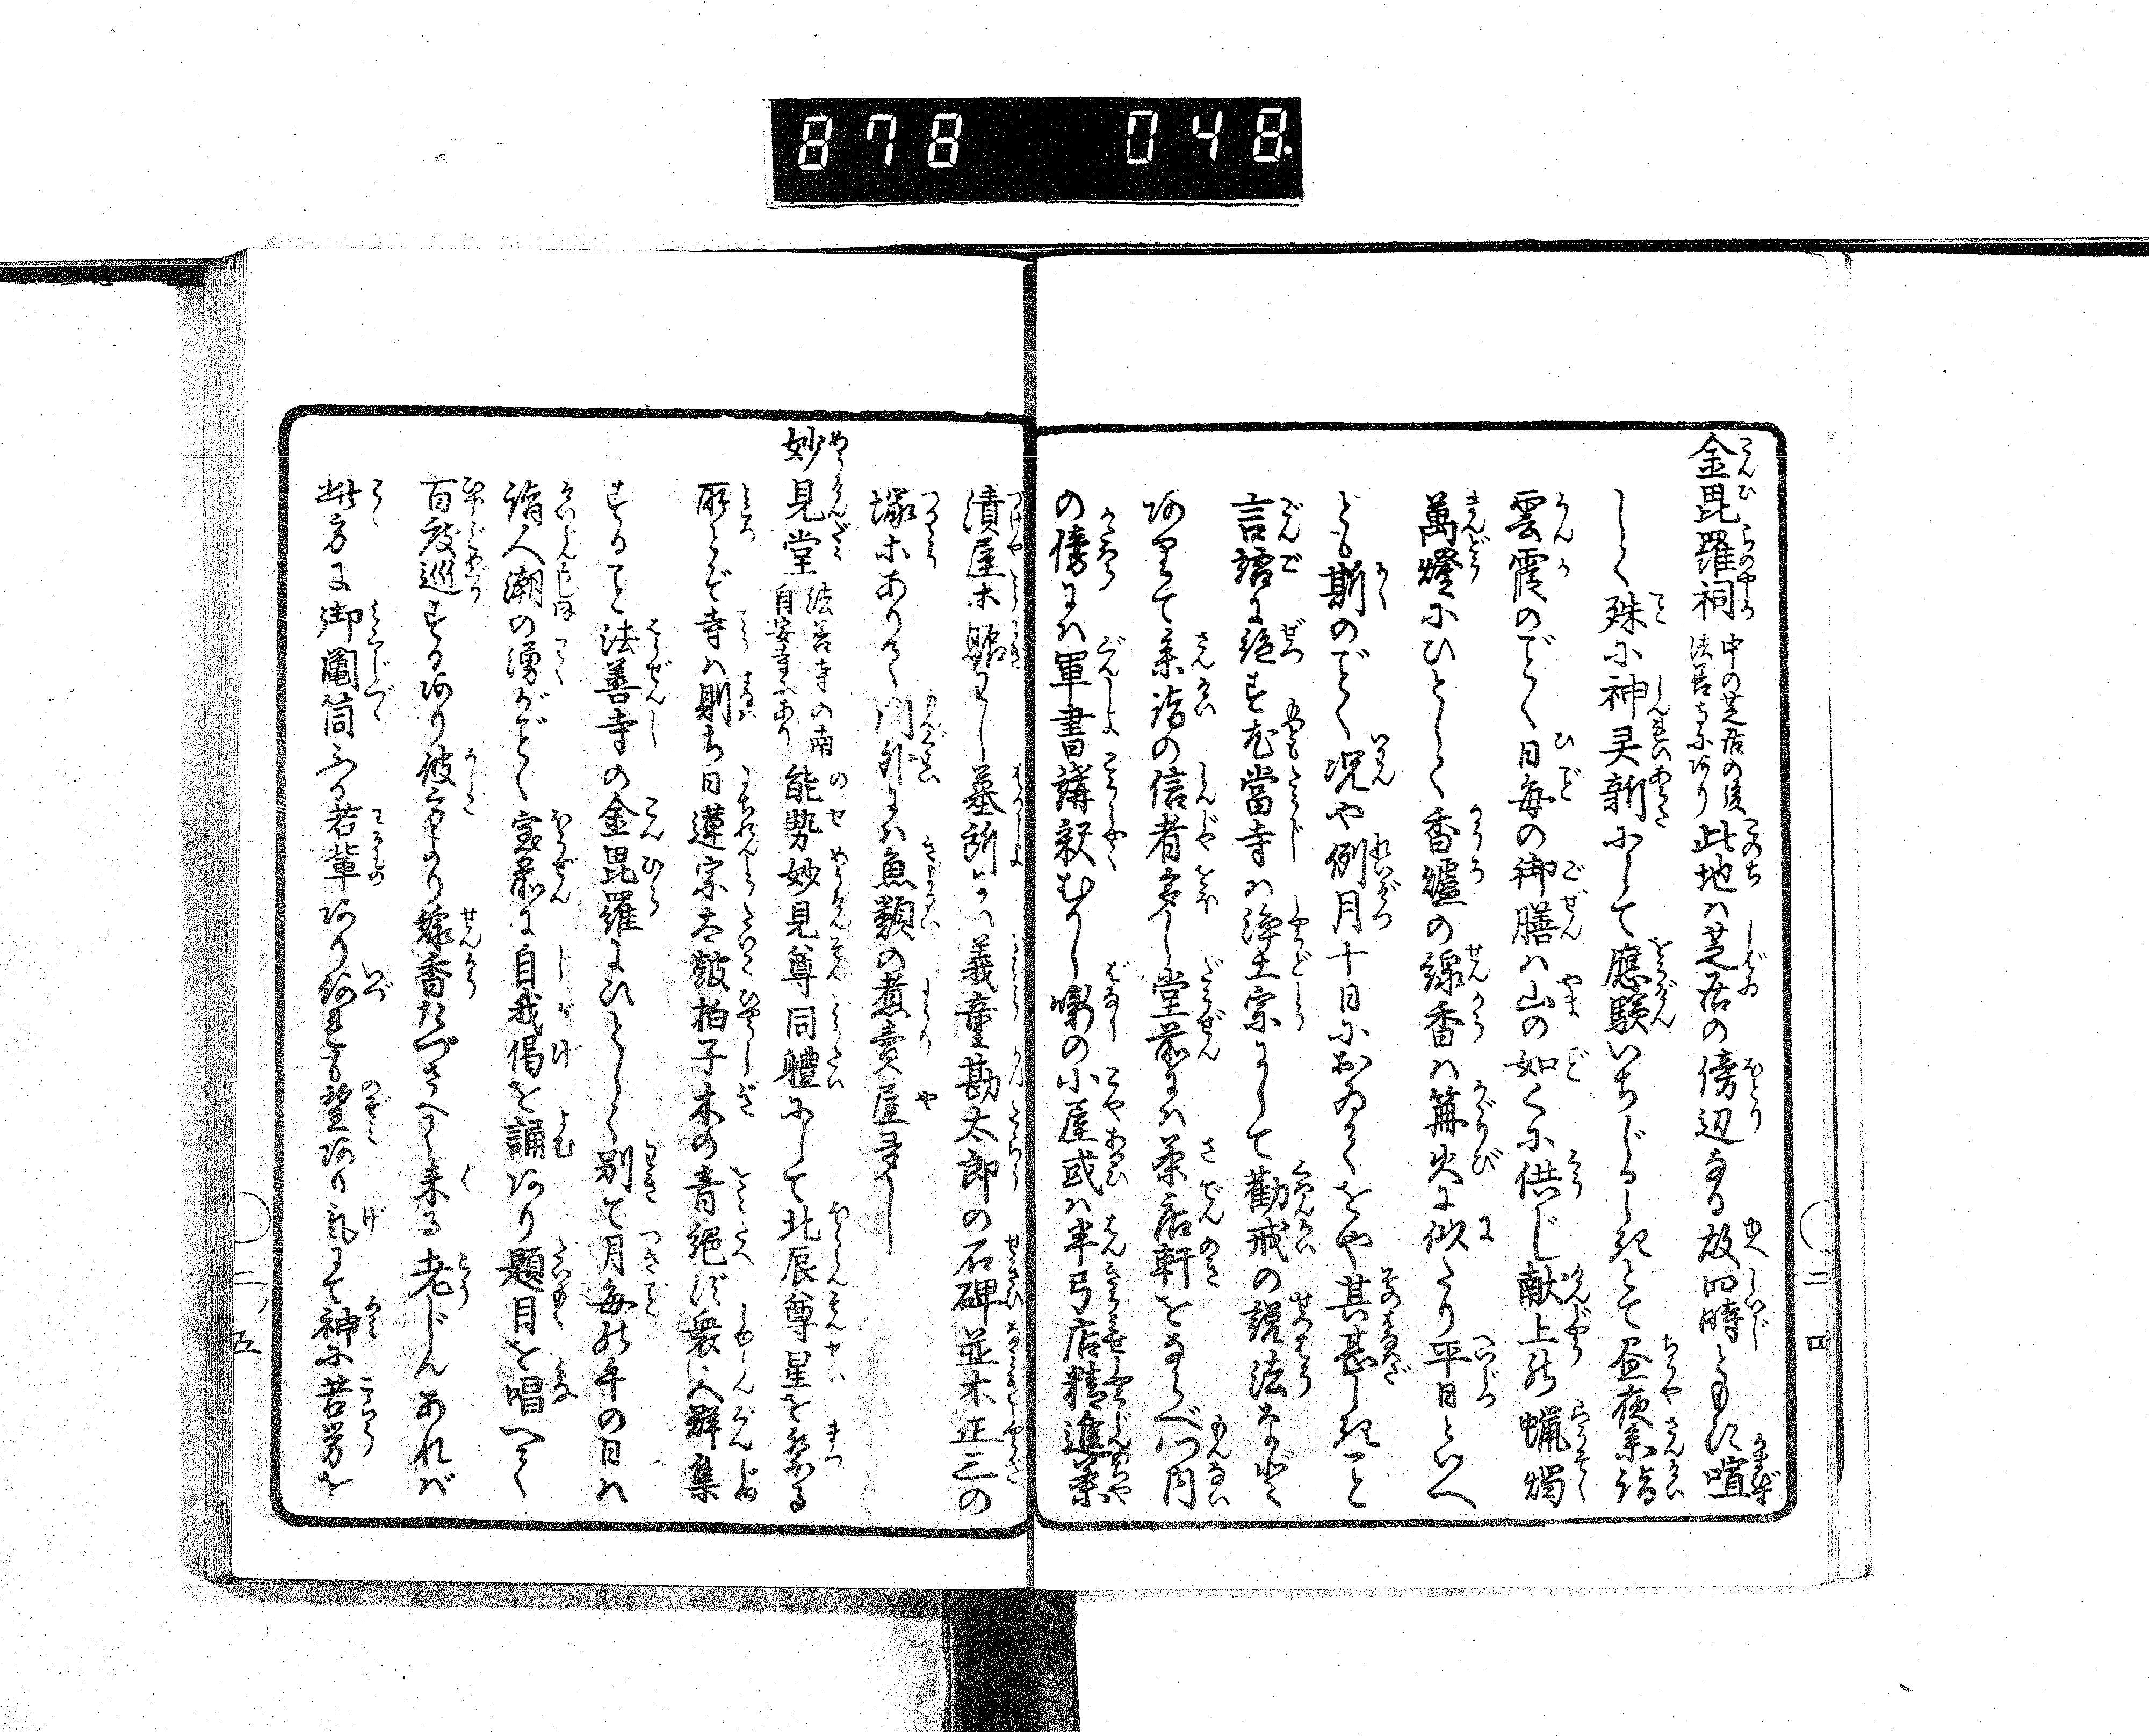 878 048
金毘羅祠 中の芝居の後 此地ハ芝居の傍辺なる故四時ともに喧
法善寺にあり
しく殊に神灵新にして應驗いちじるしきとて昼夜参詣
雲霞のごとく日毎の御膳ハ山の如くに供じ献上の蝋燭
萬燈にひとしく香爐の線香ハ篝火に似たり平日といへ
ども斯のごとく况や例月十日におゐてをや其甚しきこと
言語に絶す尤當寺ハ浄土宗にして勸戒の説法など
ありて参詣の信者多し堂前にハ茶店軒をならべ門内
の傍にハ軍書講釈むかし噺の小屋或ハ半弓店精進茶
漬屋木 し墓所にハ義童勘太郎の石碑並木正三の
塚本あり 門外にハ魚類の煮賣屋多し
妙見堂 法善寺の南 能勢妙見尊同體にして北辰尊星を祭る
自安寺にあり
所なり寺ハ則ち日蓮宗太皷拍子木の音絶ず衆人群集
すること法善寺の金毘羅にひとしく別て月毎の午の日ハ
詣人潮の湧がごとく宝前に自我偈を誦あり題目を唱へて
百度巡するあり彼方より線香たづさへて来る老じんあれば
此方に御鬮筒ふる若輩あり何も望あり気にて神に苦労を
二ノ口
二ノ五